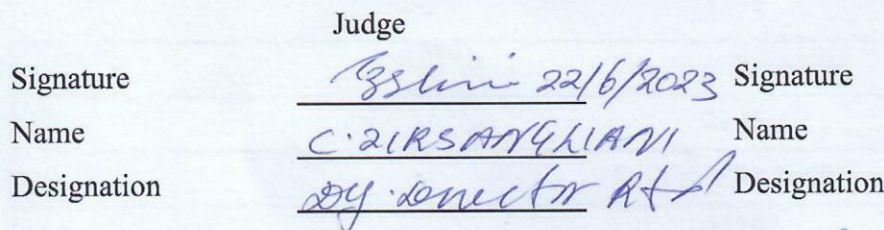 Judge
Signature 22/6/2023 Signature
Name C. ZIRSANGLIANI Name
Designation Dy. Director Rtd Designation